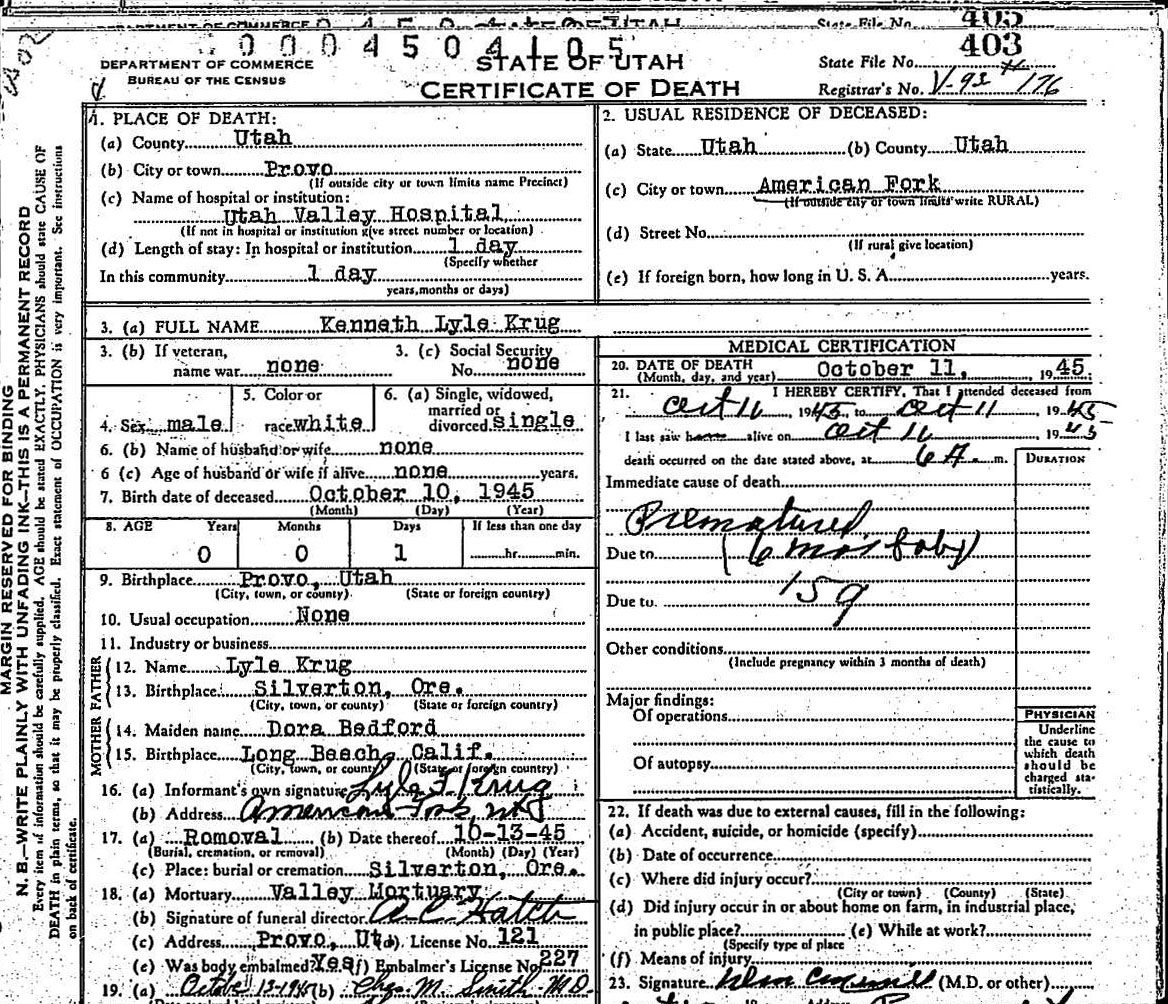 DEPARTMENT OF COMMERCE
STATE OF UTAH
State File No. 405
0 0 0 4 5 0 4 1 0 5
403
DEPARTMENT OF COMMERCE
BUREAU OF THE CENSUS
STATE OF UTAH
CERTIFICATE OF DEATH
State File No.
Registrar's No. V-92 # 176
MARGIN RESERVED FOR BINDING
N. B.—WRITE PLAINLY WITH UNFADING INK—THIS IS A PERMANENT RECORD
Every item of information should be carefully supplied. AGE should be stated EXACTLY. PHYSICIANS should state CAUSE OF
DEATH in plain terms, so that it may be properly classified. Exact statement of OCCUPATION is very important. See instructions
on back of certificate.
1. PLACE OF DEATH:
(a) County Utah
(b) City or town Provo
(If outside city or town limits name Precinct)
(c) Name of hospital or institution:
Utah Valley Hospital
(If not in hospital or institution give street number or location)
(d) Length of stay: In hospital or institution 1 day
(Specify whether
In this community 1 day
years, months or days)
2. USUAL RESIDENCE OF DECEASED:
(a) State Utah (b) County Utah
(c) City or town American Fork
(If outside city or town limits write RURAL)
(d) Street No.
(If rural give location)
(e) If foreign born, how long in U. S. A. years.
3. (a) FULL NAME Kenneth Lyle Krug
3. (b) If veteran,
name war none
3. (c) Social Security
No. none
4. Sex male
5. Color or
race white
6. (a) Single, widowed,
married or
divorced single
6. (b) Name of husband or wife none
6 (c) Age of husband or wife if alive none years.
7. Birth date of deceased October 10, 1945
(Month) (Day) (Year)
8. AGE Years Months Days If less than one day
0 0 1 hr. min.
9. Birthplace Provo, Utah
(City, town, or county) (State or foreign country)
10. Usual occupation None
11. Industry or business
FATHER
12. Name Lyle Krug
13. Birthplace Silverton, Ore.
(City, town, or county) (State or foreign country)
MOTHER
14. Maiden name Dora Bedford
15. Birthplace Long Beach, Calif.
(City, town, or county) (State or foreign country)
16. (a) Informant's own signature Lyle F Krug
(b) Address American Fork
17. (a) Romoval (b) Date thereof 10-13-45
(Burial, cremation, or removal) (Month) (Day) (Year)
(c) Place: burial or cremation Silverton, Ore.
18. (a) Mortuary Valley Mortuary
(b) Signature of funeral director A C Hatch
(c) Address Provo, Ut (d). License No. 121
(e) Was body embalmed? Yes (f) Embalmer's License No. 227
19. (a) October 12-1945 (b) Chas. M. Smith M.D.
MEDICAL CERTIFICATION
20. DATE OF DEATH October 11, 1945.
(Month, day, and year)
21. I HEREBY CERTIFY, That I attended deceased from
Oct 10, 1945, to Oct 11 1945
I last saw alive on Oct 10 1945
death occurred on the date stated above, at 6 A. m.
DURATION
Immediate cause of death
Prematured
Due to (6 mos baby)
159
Due to
Other conditions
(Include pregnancy within 3 months of death)
Major findings:
Of operations
Of autopsy
PHYSICIAN
Underline
the cause to
which death
should be
charged sta-
tistically.
22. If death was due to external causes, fill in the following:
(a) Accident, suicide, or homicide (specify)
(b) Date of occurrence
(c) Where did injury occur?
(City or town) (County) (State)
(d) Did injury occur in or about home on farm, in industrial place,
in public place? (e) While at work?
(Specify type of place
(f) Means of injury
23. Signature (M.D. or other)